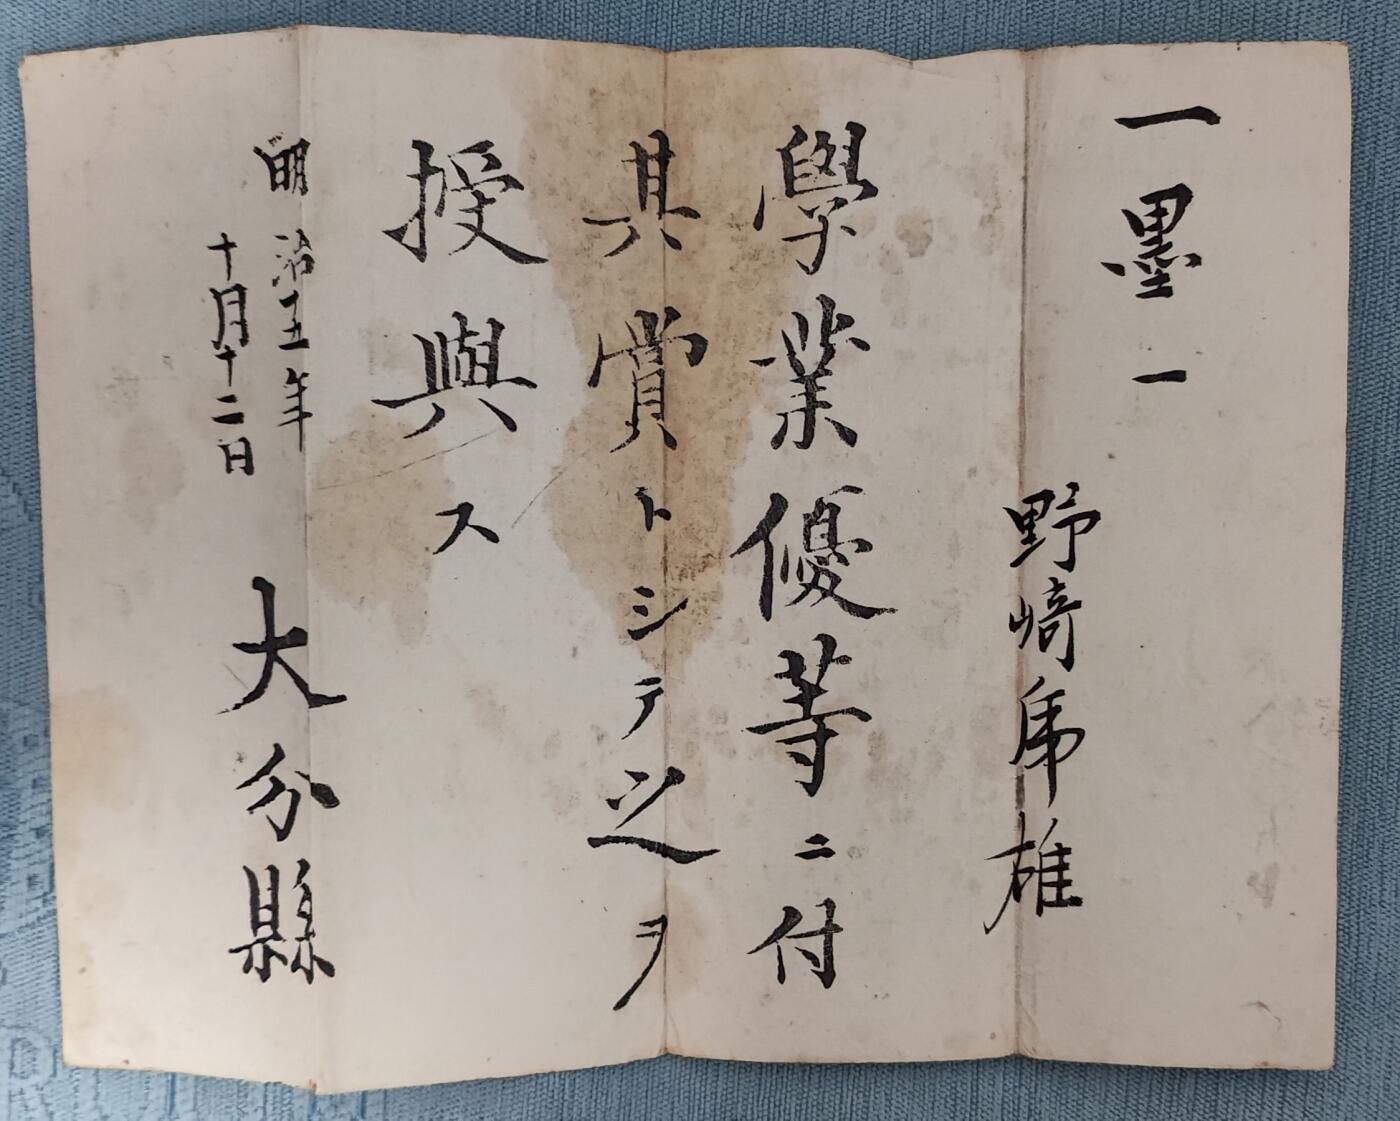 一墨 一
野﨑乕雄
學業優等ニ付
其賞トシテ之ヲ
授與ス
明治五年
十月十二日
大分縣